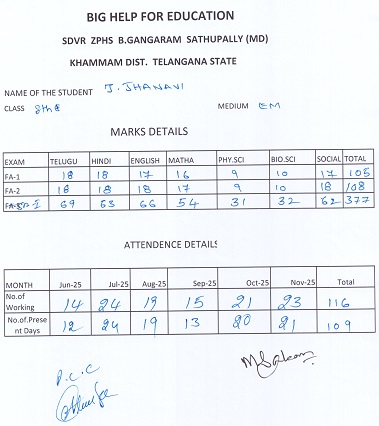 BIG HELP FOR EDUCATION
SDVR ZPHS B.GANGARAM SATHUPALLY (MD)
KHAMMAM DIST. TELANGANA STATE
NAME OF THE STUDENT J. JHANAVI
CLASS 8th E MEDIUM EM
MARKS DETAILS
EXAM TELUGU HINDI ENGLISH MATHA PHY.SCI BIO.SCI SOCIAL TOTAL
FA-1 18 18 17 16 9 10 17 105
FA-2 18 18 18 17 9 10 18 108
69 63 66 54 31 32 62 377
ATTENDENCE DETAILS
MONTH Jun-25 Jul-25 Aug-25 Sep-25 Oct-25 Nov-25 Total
No.of
Working 14 24 19 15 21 23 116
No.of.Prese
nt Days 12 24 19 13 20 21 109
P.C.C